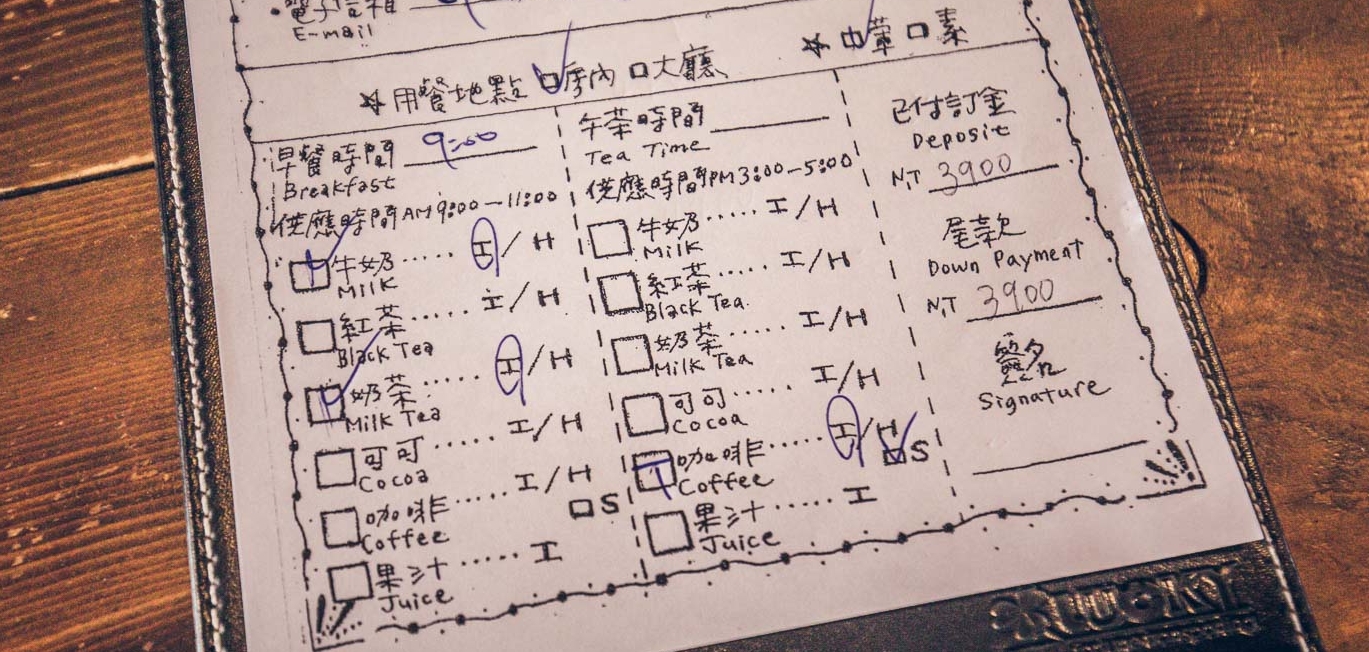 電子信箱
E-mail
用餐地點 □房內 □大廳
□葷 □素
早餐時間 9:00
Breakfast
供應時間AM9:00-11:00
牛奶..... I/H
Milk
紅茶..... I/H
Black Tea
奶茶..... I/H
Milk Tea
可可..... I/H
Cocoa
咖啡..... I/H
Coffee □S
果汁..... I
Juice
午茶時間
Tea Time
供應時間PM3:00-5:00
牛奶..... I/H
Milk
紅茶..... I/H
Black Tea
奶茶..... I/H
Milk Tea
可可..... I/H
Cocoa
咖啡..... I/H
Coffee □S
果汁..... I
Juice
已付訂金
Deposit
N,T 3900
尾款
Down Payment
N,T 3900
簽名
Signature